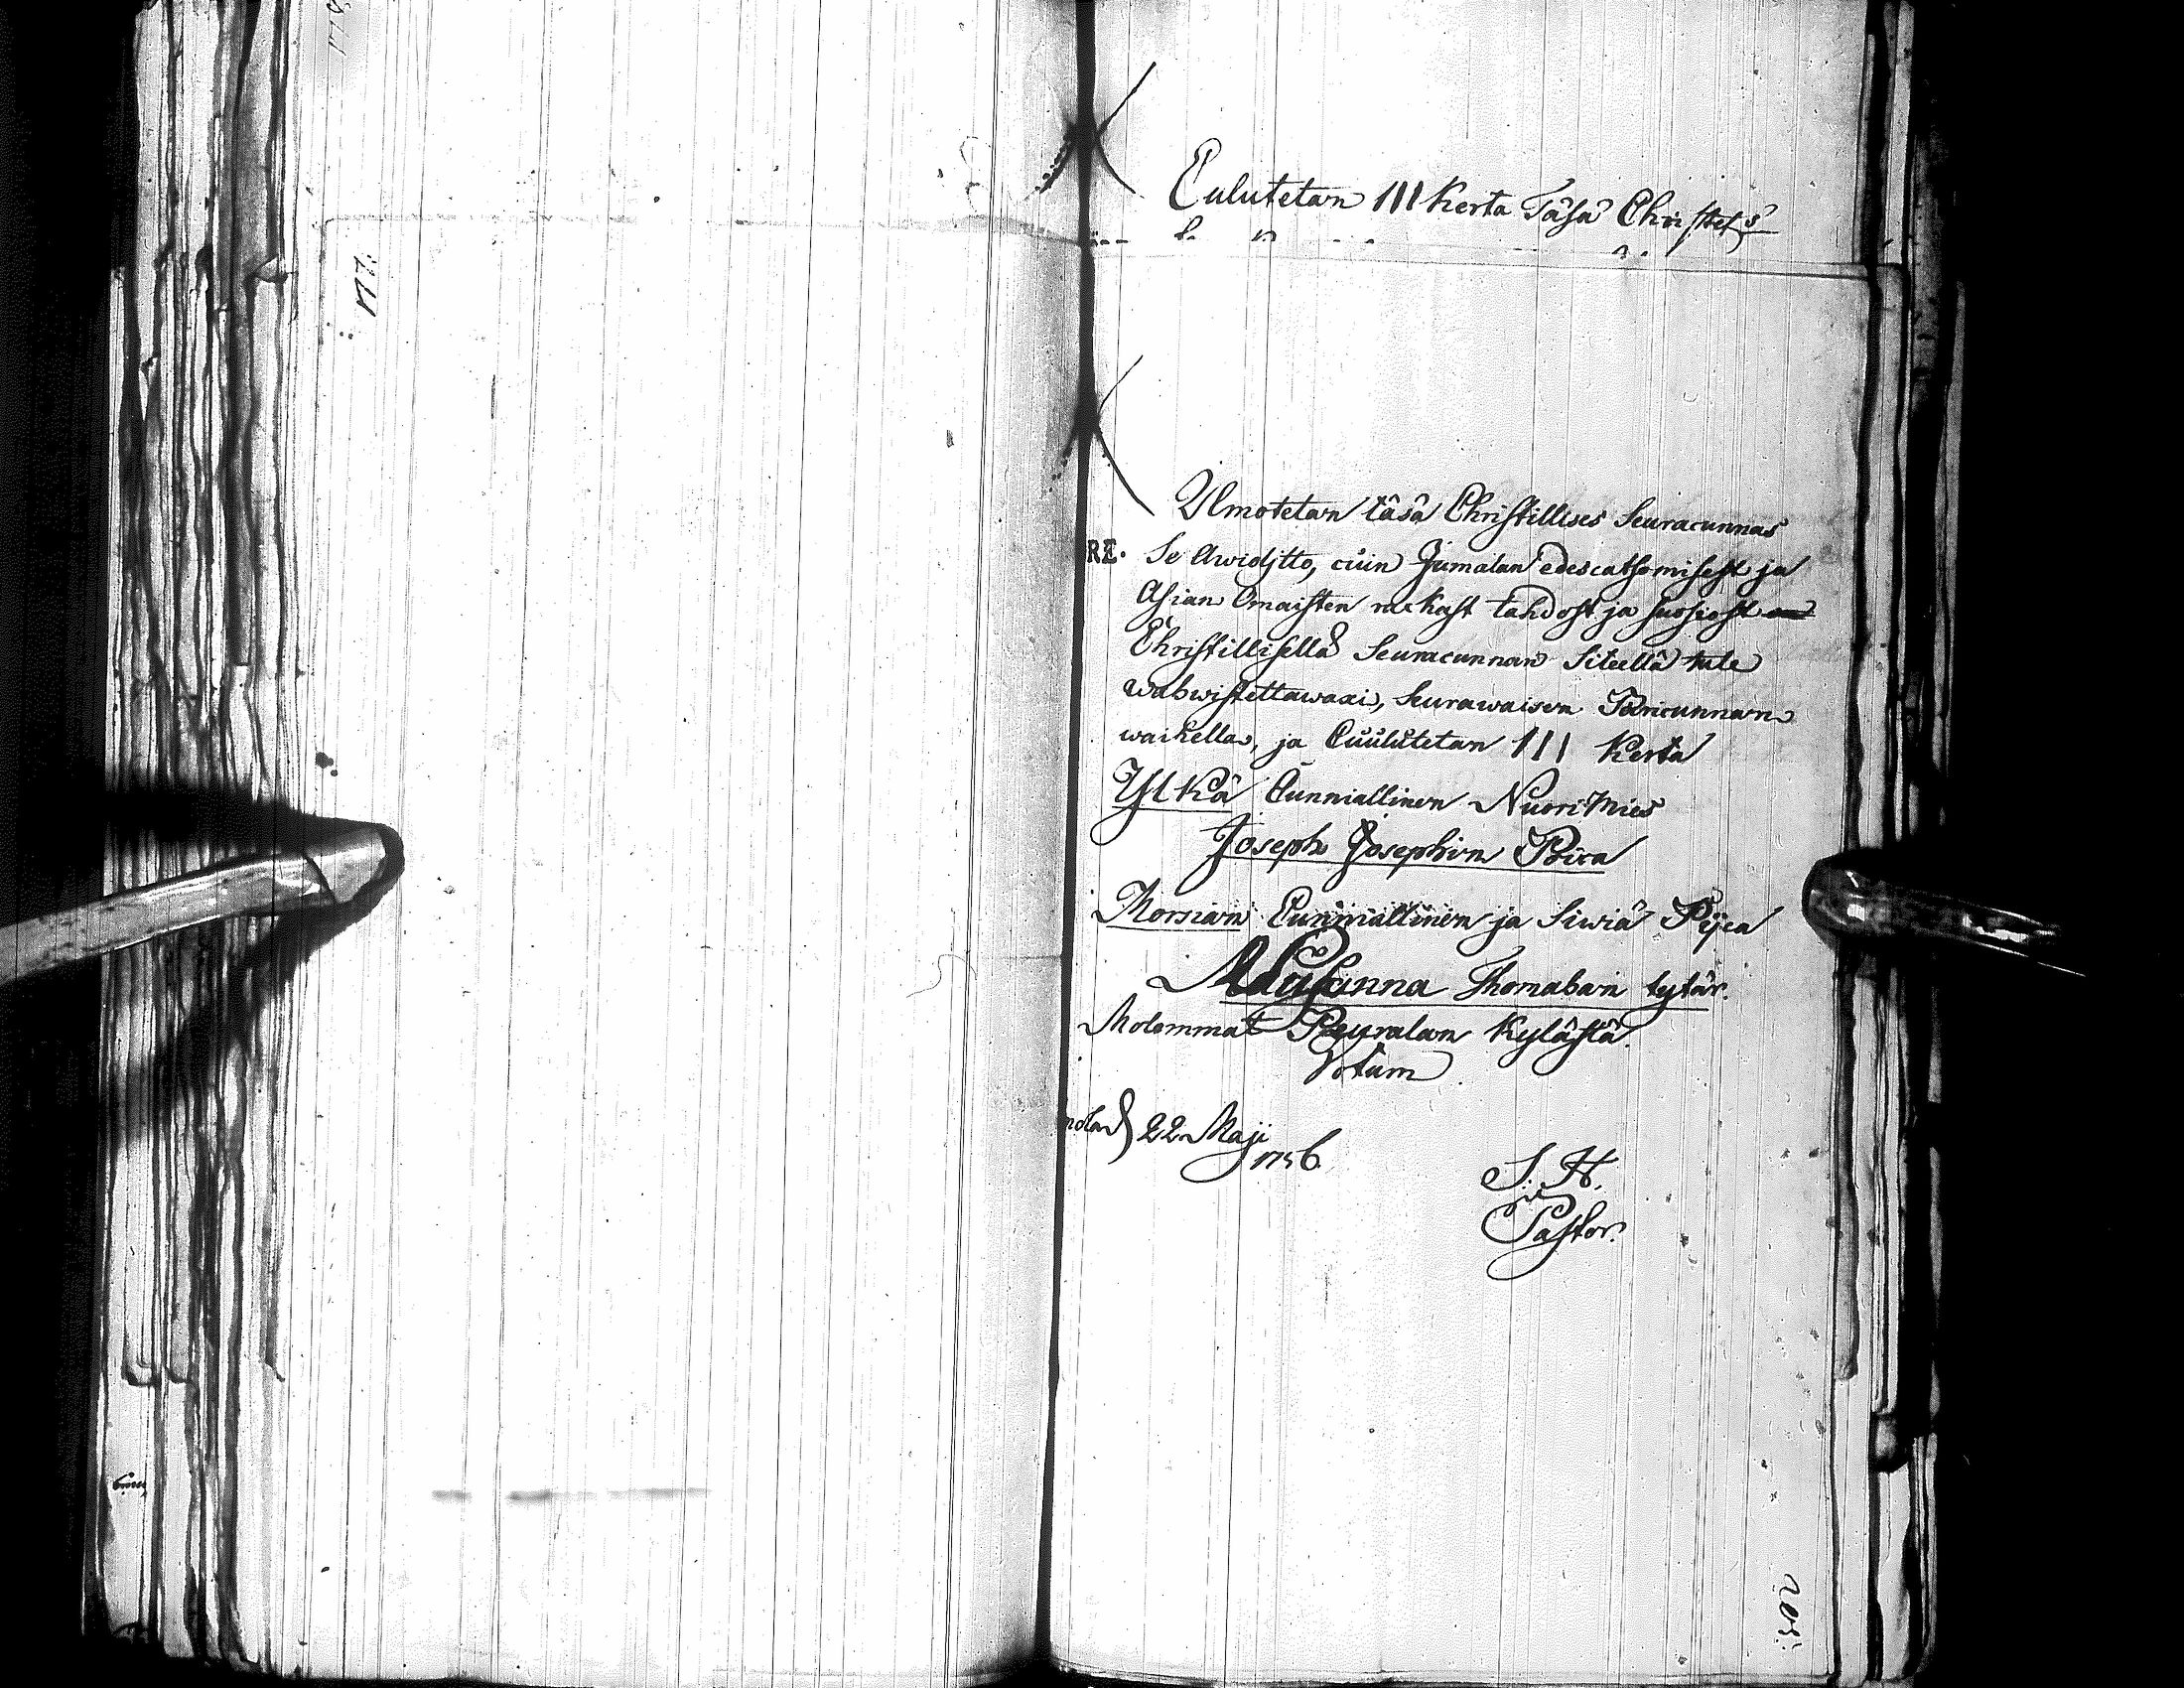 177.
Culutetan III Kerta Täsä Christel s
Ilmotetan täsä Christillises Seuracunnas
RE. Se Awiosjtto, cuin Jumalan edescatsomisest ja
Asian Omaisten rackast tahdost ja suosiost
Christillisellä Seuracunnan Siteellä tule
wahwistettawaxi, Seurawaisen Paricunnan
waihella, ja Cuulutetan III Kerta
Ylkä Cunniallinen Nuori Mies
Joseph Josephin Poica
Morsian Cunniallinen ja Siwiä Pijca
Susanna Thomaxen tytär.
Molemmat Peuralan Kylästä.
Votum
22 Maji
1756.
S. H.
Pastor.
203.